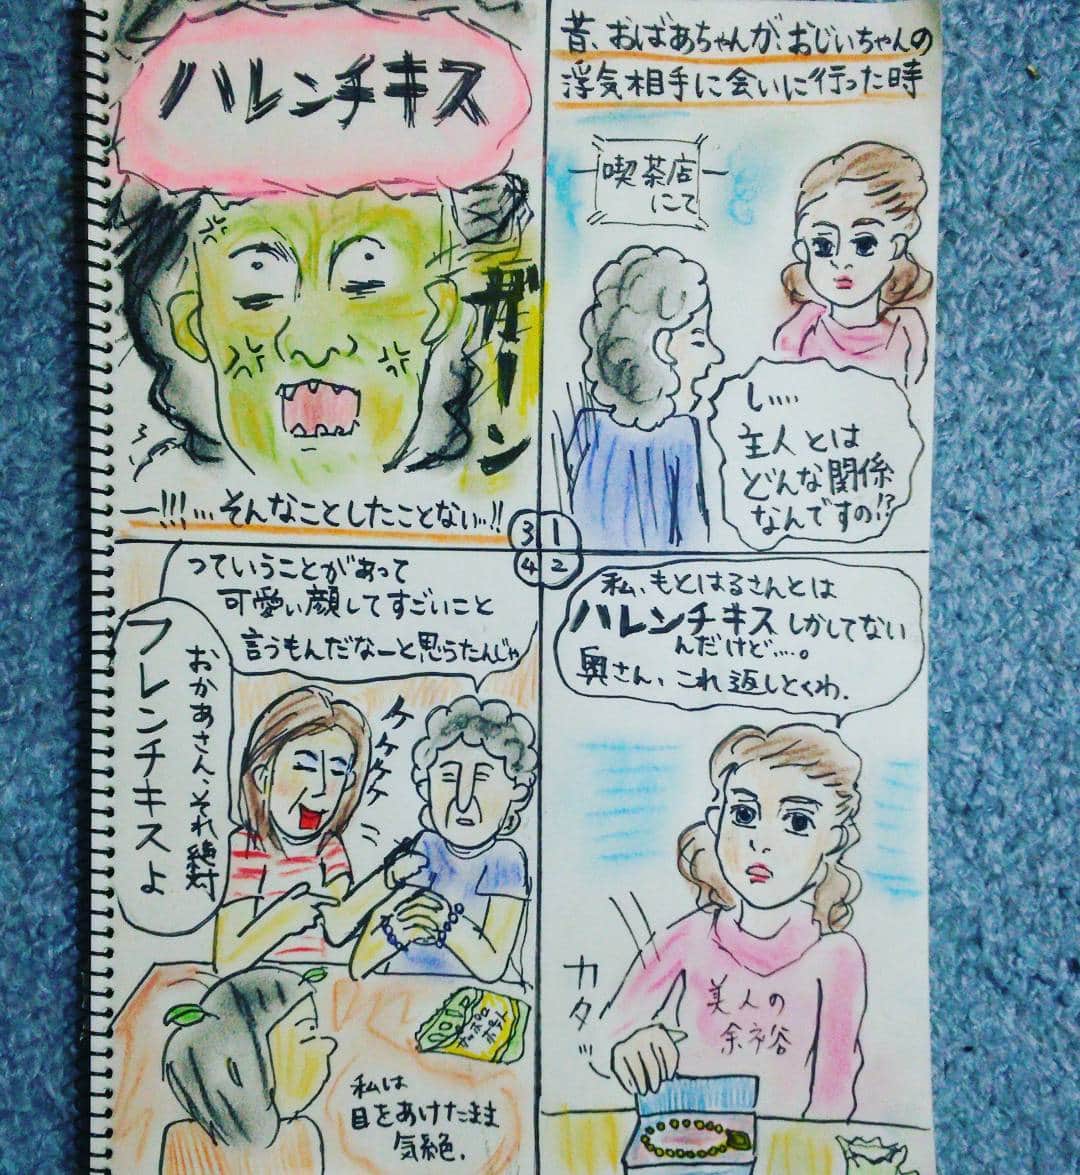 昔、おばあちゃんが、おじいちゃんの
浮気相手に会いに行った時
喫茶店
にて
し....
主人とは
どんな関係
なんですの!?
1
私、もとはるさんとは
ハレンチキスしかしてない
んだけど....。
奥さん、これ返しとくわ.
カタッ
美人の
余裕
2
ハレンチキス
ガーン
ー!!!...そんなことしたことない...!!
3
4
っていうことがあって
可愛い顔してすごいこと
言うもんだなーと思うたんじゃ
おかあさん、それ絶対
フレンチキスよ
ケケケケ
サッポロ
ポテト
私は
目をあけたまま
気絶.